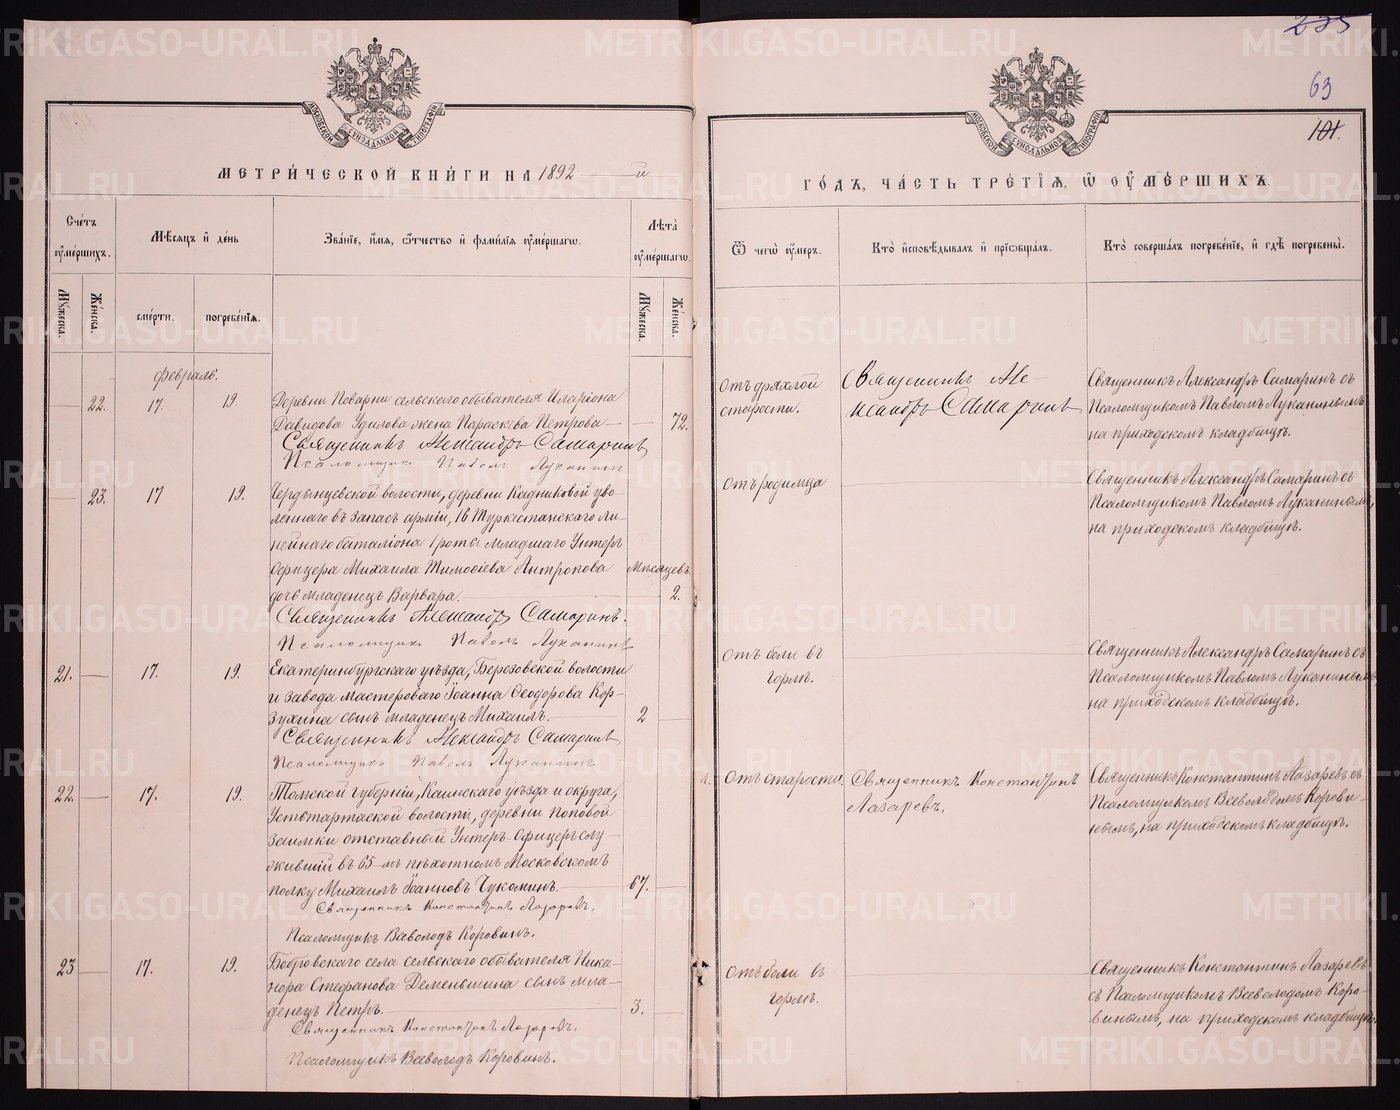 235
63
101.
МОСКОВСКОЙ СѴНОДАЛЬНОЙ ТИПОГРАФІИ
МОСКОВСКОЙ СѴНОДАЛЬНОЙ ТИПОГРАФІИ
МЕТРИ́ЧЕСКОЙ КНИ́ГИ НА 1892 й
ГО́ДЪ, ЧА́СТЬ ТРЕ́ТІѦ, Ѡ ОУМЕ́РШИХЪ.
Сче́тъ оуме́ршихъ.
Мѣ́сѧцъ и де́нь
Зва́нїе, и́мѧ, ѻ́тчество и фами́лїѧ оуме́ршагѡ.
Лѣ́та оуме́ршагѡ.
Ѿ чегѡ̀ оу́меръ.
Кто̀ исповѣ́дывалъ и прїѡбща́лъ.
Кто̀ соверша́лъ погребе́нїе, и гдѣ̀ погребены̀.
Мꙋ́жеска. Же́нска.
сме́рти. погребе́нїѧ.
Мꙋ́жеска. Же́нска.
Февраль.
22. 17. 19. Деревни Поварни сельскаго обывателя Иларіона
Давидова Удилова жена Параскева Петрова 72.
Священникъ Александръ Самаринъ
Псаломщикъ Павелъ Луканинъ
Отъ дряхлой
старости.
Священникъ Але-
ксандръ Самаринъ
Священникъ Александръ Самаринъ съ
Псаломщикомъ Павломъ Луканинымъ
на приходскомъ кладбищѣ.
23. 17 19. Чердынцевской волости, деревни Кадниковой уво-
леннаго въ запасъ арміи, 16 Туркестанскаго Ли-
нейнаго баталіона 1 роты младшаго Унтеръ
Офицера Михаила Тимоѳеева Антропова Мѣсяцевъ
дочь младенецъ Варвара. 2.
Священникъ Александръ Самаринъ.
Псаломщикъ Павелъ Луканинъ
Отъ родимца
Священникъ Александръ Самаринъ съ
Псаломщикомъ Павломъ Луканинымъ,
на приходскомъ кладбищѣ.
21. 17. 19. Екатеринбургскаго уѣзда, Березовской волости
и завода мастероваго Іоанна Ѳеодорова Кор-
зухина сынъ младенецъ Михаилъ. 2
Священникъ Александръ Самаринъ
Псаломщикъ Павелъ Луканинъ
Отъ боли въ
горлѣ.
Священникъ Александръ Самаринъ съ
Псаломщикомъ Павломъ Луканинымъ,
на приходскомъ кладбищѣ.
22. 17. 19. Томской губерніи, Каинскаго уѣзда и округа,
Устьтартаской волости, деревни Поповой
Заимки отставный Унтеръ-Офицеръ слу-
жившій въ 65-мъ пѣхотномъ Московскомъ
полку Михаилъ Іоанновъ Чукоминъ. 67.
Священникъ Константинъ Лазаревъ.
Псаломщикъ Всеволодъ Коровинъ.
Отъ старости.
Священникъ Константинъ
Лазаревъ.
Священникъ Константинъ Лазаревъ съ
Псаломщикомъ Всеволодомъ Корови-
нымъ, на приходскомъ кладбищѣ.
23 17. 19. Бобровскаго села сельскаго обывателя Ника-
нора Стефанова Деменьшина сынъ мла-
денецъ Петръ. 3.
Священникъ Константинъ Лазаревъ.
Псаломщикъ Всеволодъ Коровинъ.
Отъ боли въ
горлѣ.
Священникъ Константинъ Лазаревъ
съ Псаломщикомъ Всеволодомъ Коро-
винымъ, на приходскомъ кладбищѣ.
METRIKI.GASO-URAL.RU